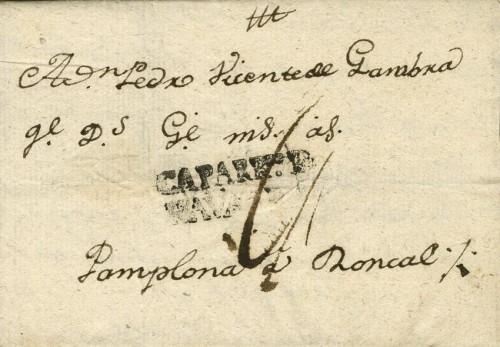 ttt
A Dn Pedro Vicente de Gambra
ge. Ds. Ge. ms. as.
CAPARR
NAVA
Pamplona á Roncal